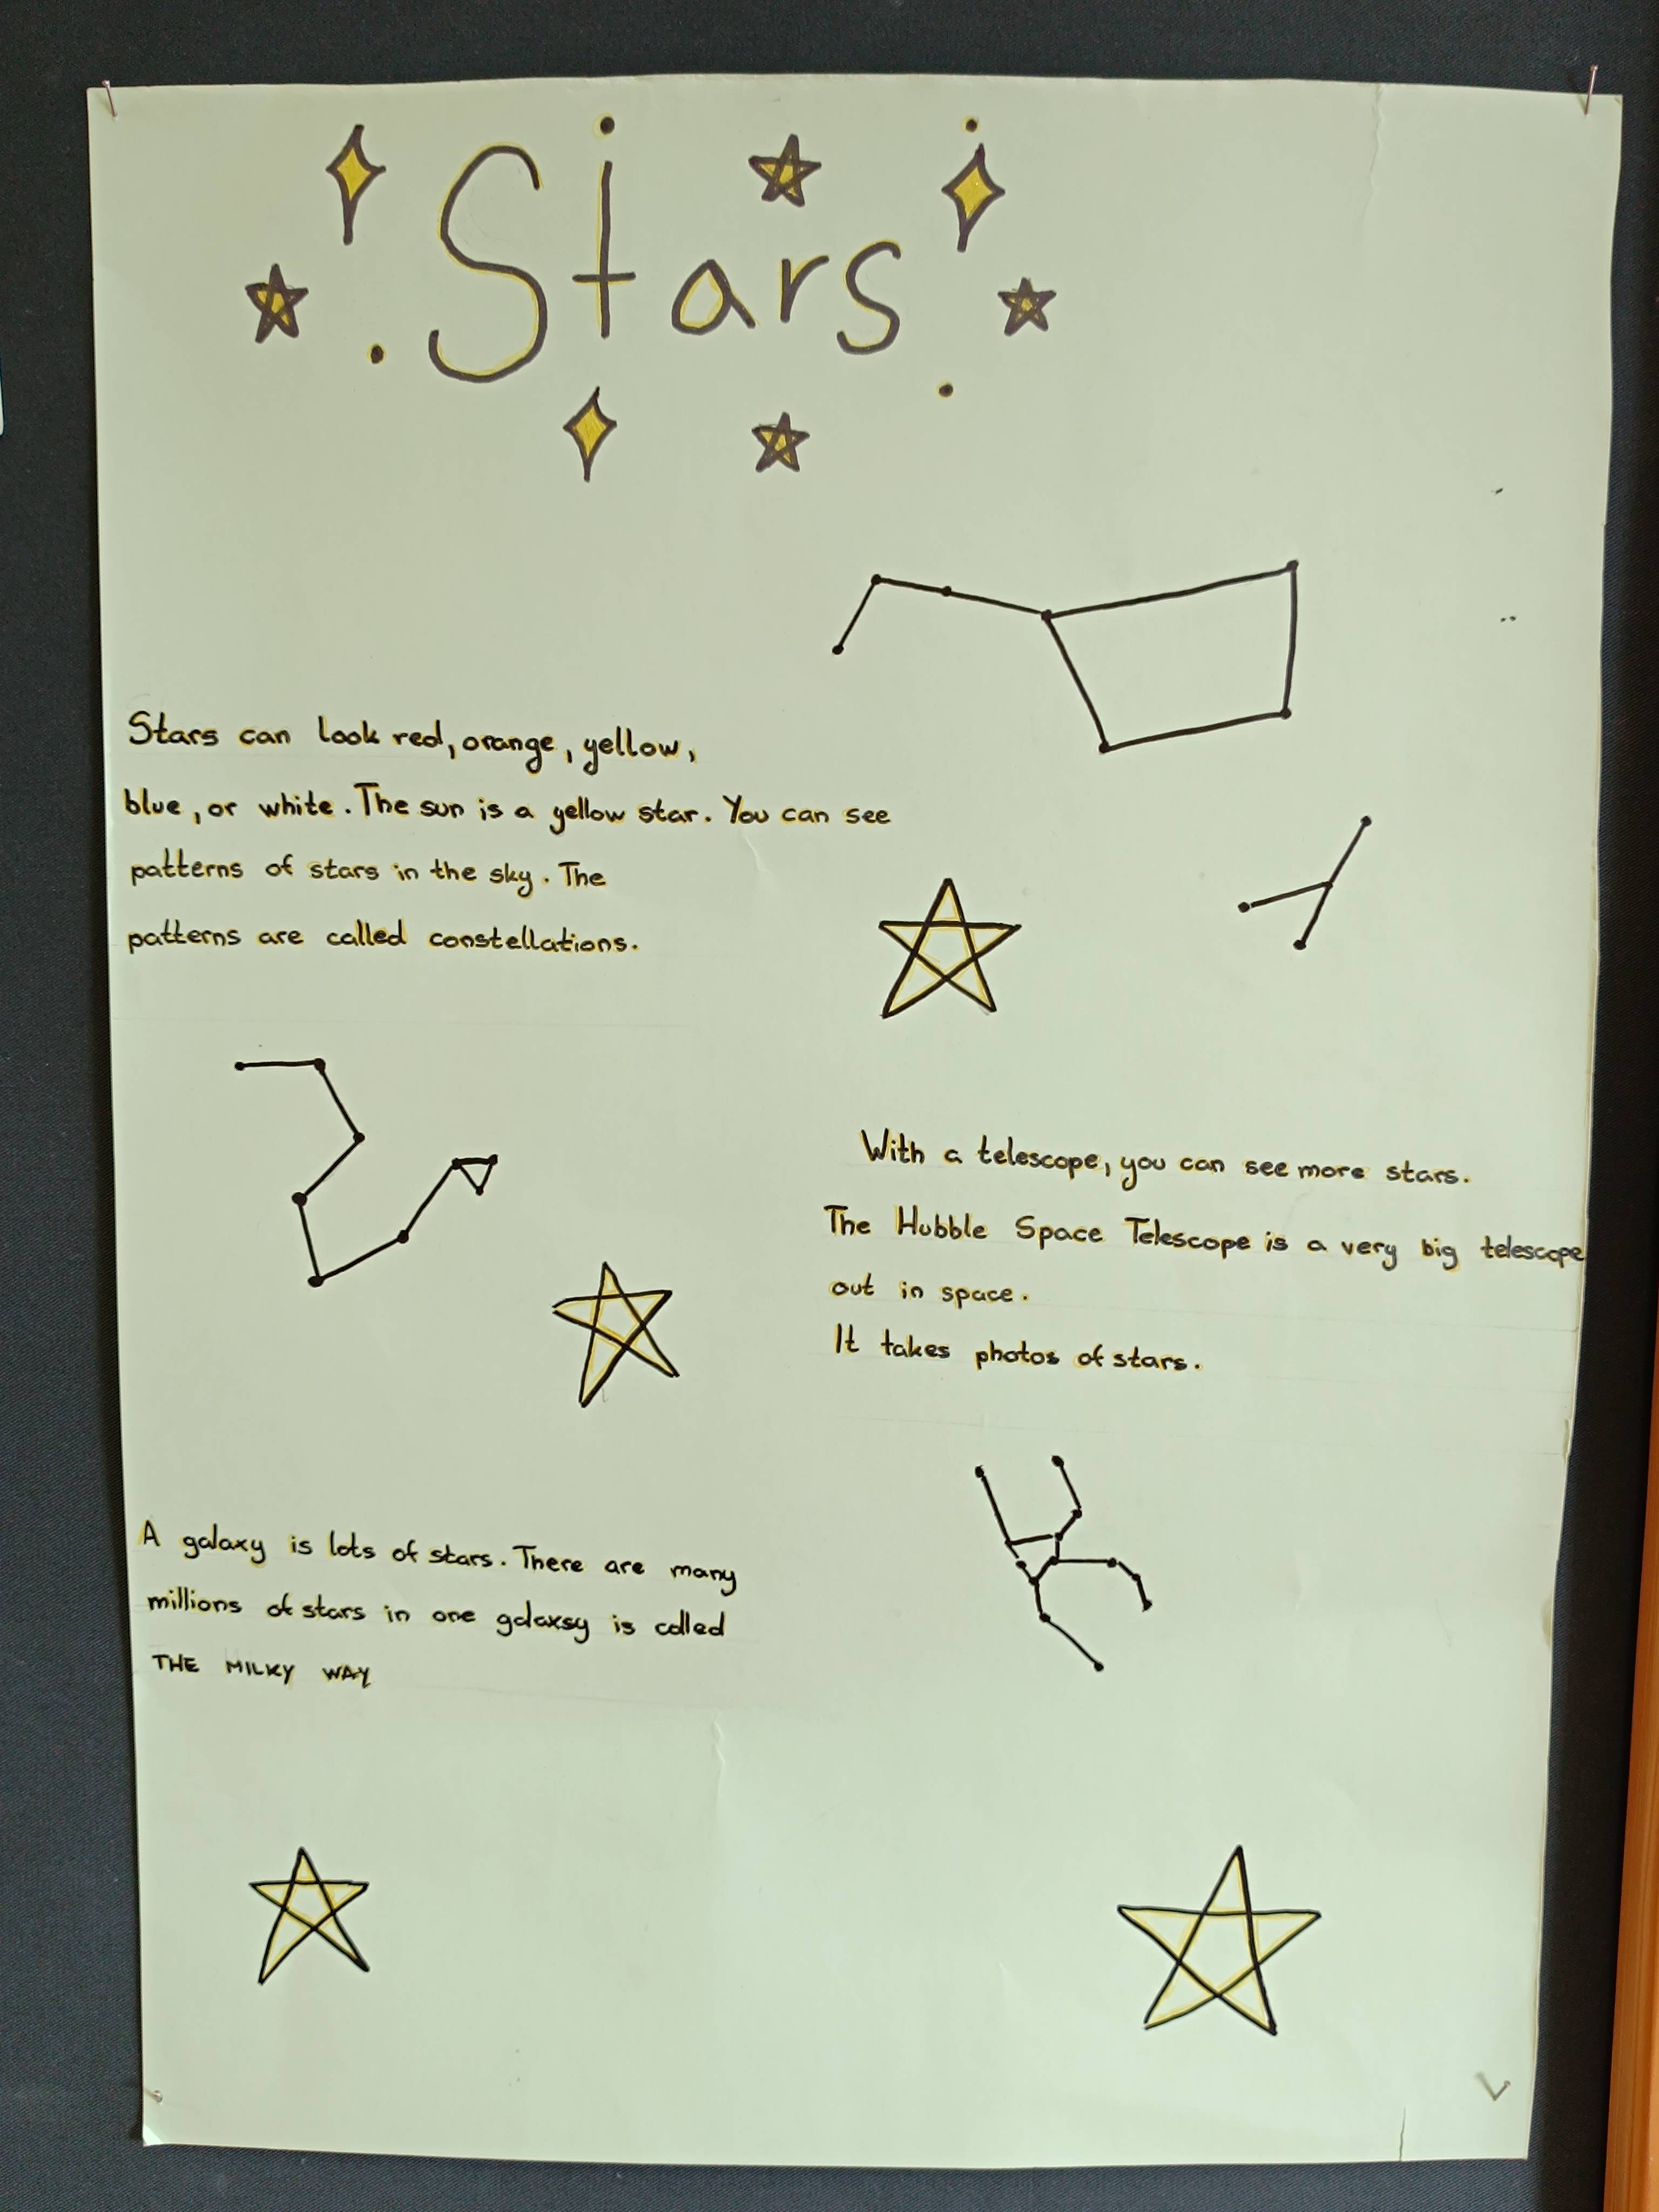 Stars
Stars can look red, orange, yellow,
blue, or white. The sun is a yellow star. You can see
patterns of stars in the sky. The
patterns are called constellations.
With a telescope, you can see more stars.
The Hubble Space Telescope is a very big telescope
out in space.
It takes photos of stars.
A galaxy is lots of stars. There are many
millions of stars in one galaxsy is called
THE MILKY WAY